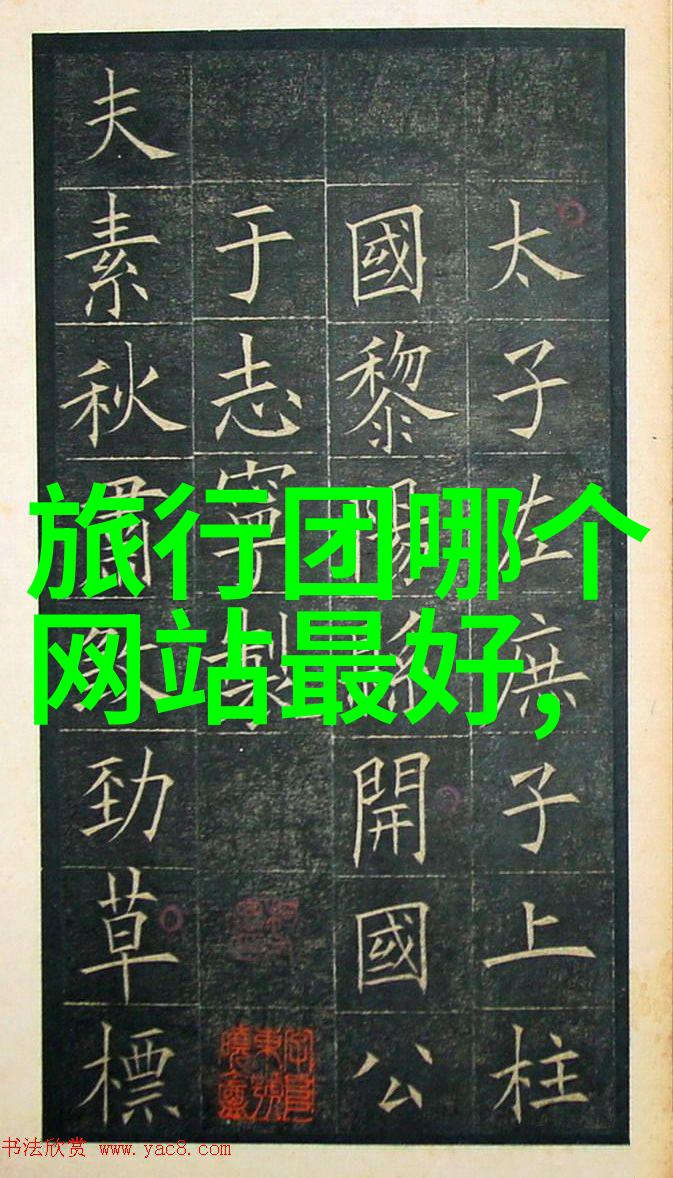 太子左庶子上柱
國黎陽縣開國公
于志寧製
夫素秋肅勁草標
旅行团哪个
网站最好,
书法欣赏 www.yac8.com